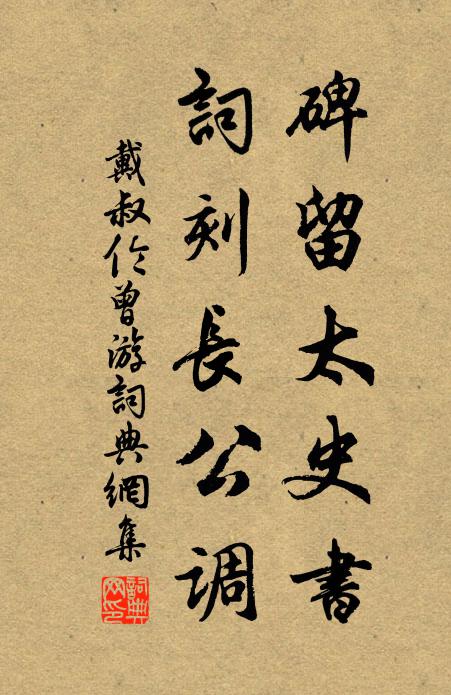 碑留太史書
詞刻長公调
戴叔伦曾游詞典網集
詞典网印